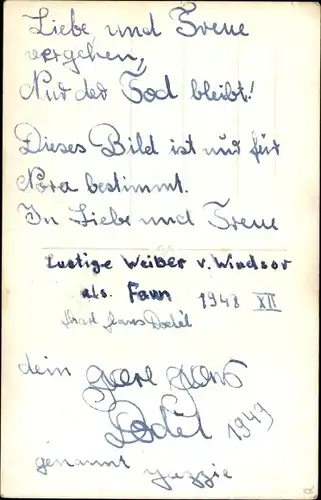 Liebe und Treue
vergehen,
Nur der Tod bleibt!
Dieses Bild ist nur für
Nora bestimmt.
In Liebe und Treue
Lustige Weiber v. Windsor
als Faun 1948 XII
Karl Hans Dodél
dein
Dodél 1949
genannt